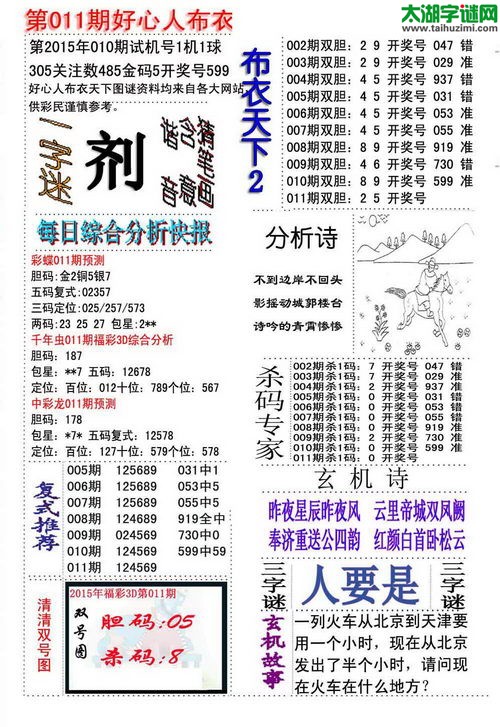 第011期好心人布衣
太湖字谜网
www.taihuzimi.com
第2015年010期试机号1机1球
305关注数485金码5开奖号599
好心人布衣天下图谜资料均来自各大网站,
供彩民谨慎参考。
一字迷
剂
猜含猪
音意笔
画
每日综合分析快报
彩蝶011期预测
胆码:金2铜5银7
五码复式:02357
三码定位:025/257/573
两码:23 25 27 包星:2**
千年虫011期福彩3D综合分析
胆码:187
包星:**7 五码:12678
定位:百位:012十位:789个位:567
中彩龙011期预测
胆码:178
包星:*7* 五码:12578
定位:百位:127十位:579个位:178
复式推荐
005期 125689 031中1
006期 125689 053中5
007期 125689 055中5
008期 124689 919全中
009期 024569 730中0
010期 124569 599中59
011期 124569
清清双号图
2015年福彩3D第011期
双号图
胆码:05
杀码:8
布衣天下2
002期双胆:2 9 开奖号 047 错
003期双胆:2 9 开奖号 029 准
004期双胆:2 9 开奖号 937 错
005期双胆:4 5 开奖号 031 错
006期双胆:4 5 开奖号 053 准
007期双胆:4 5 开奖号 055 准
008期双胆:8 9 开奖号 919 准
009期双胆:4 6 开奖号 730 错
010期双胆:8 9 开奖号 599 准
011期双胆:2 5 开奖号
分析诗
不到边岸不回头
影摇动城郭楼台
诗吟的青霄惨惨
杀码专家
002期杀1码:7 开奖号 047 错
003期杀1码:7 开奖号 029 准
004期杀1码:2 开奖号 937 准
005期杀1码:0 开奖号 031 错
006期杀1码:0 开奖号 053 错
007期杀1码:0 开奖号 055 错
008期杀1码:0 开奖号 919 准
009期杀1码:2 开奖号 730 准
010期杀1码:0 开奖号 599 准
011期杀1码:0 开奖号
玄机诗
昨夜星辰昨夜风 云里帝城双凤阙
奉济重送公四韵 红颜白首卧松云
三字谜
人要是
三字谜
玄机故事
一列火车从北京到天津要
用一个小时，现在从北京
发出了半个小时，请问现
在火车在什么地方?